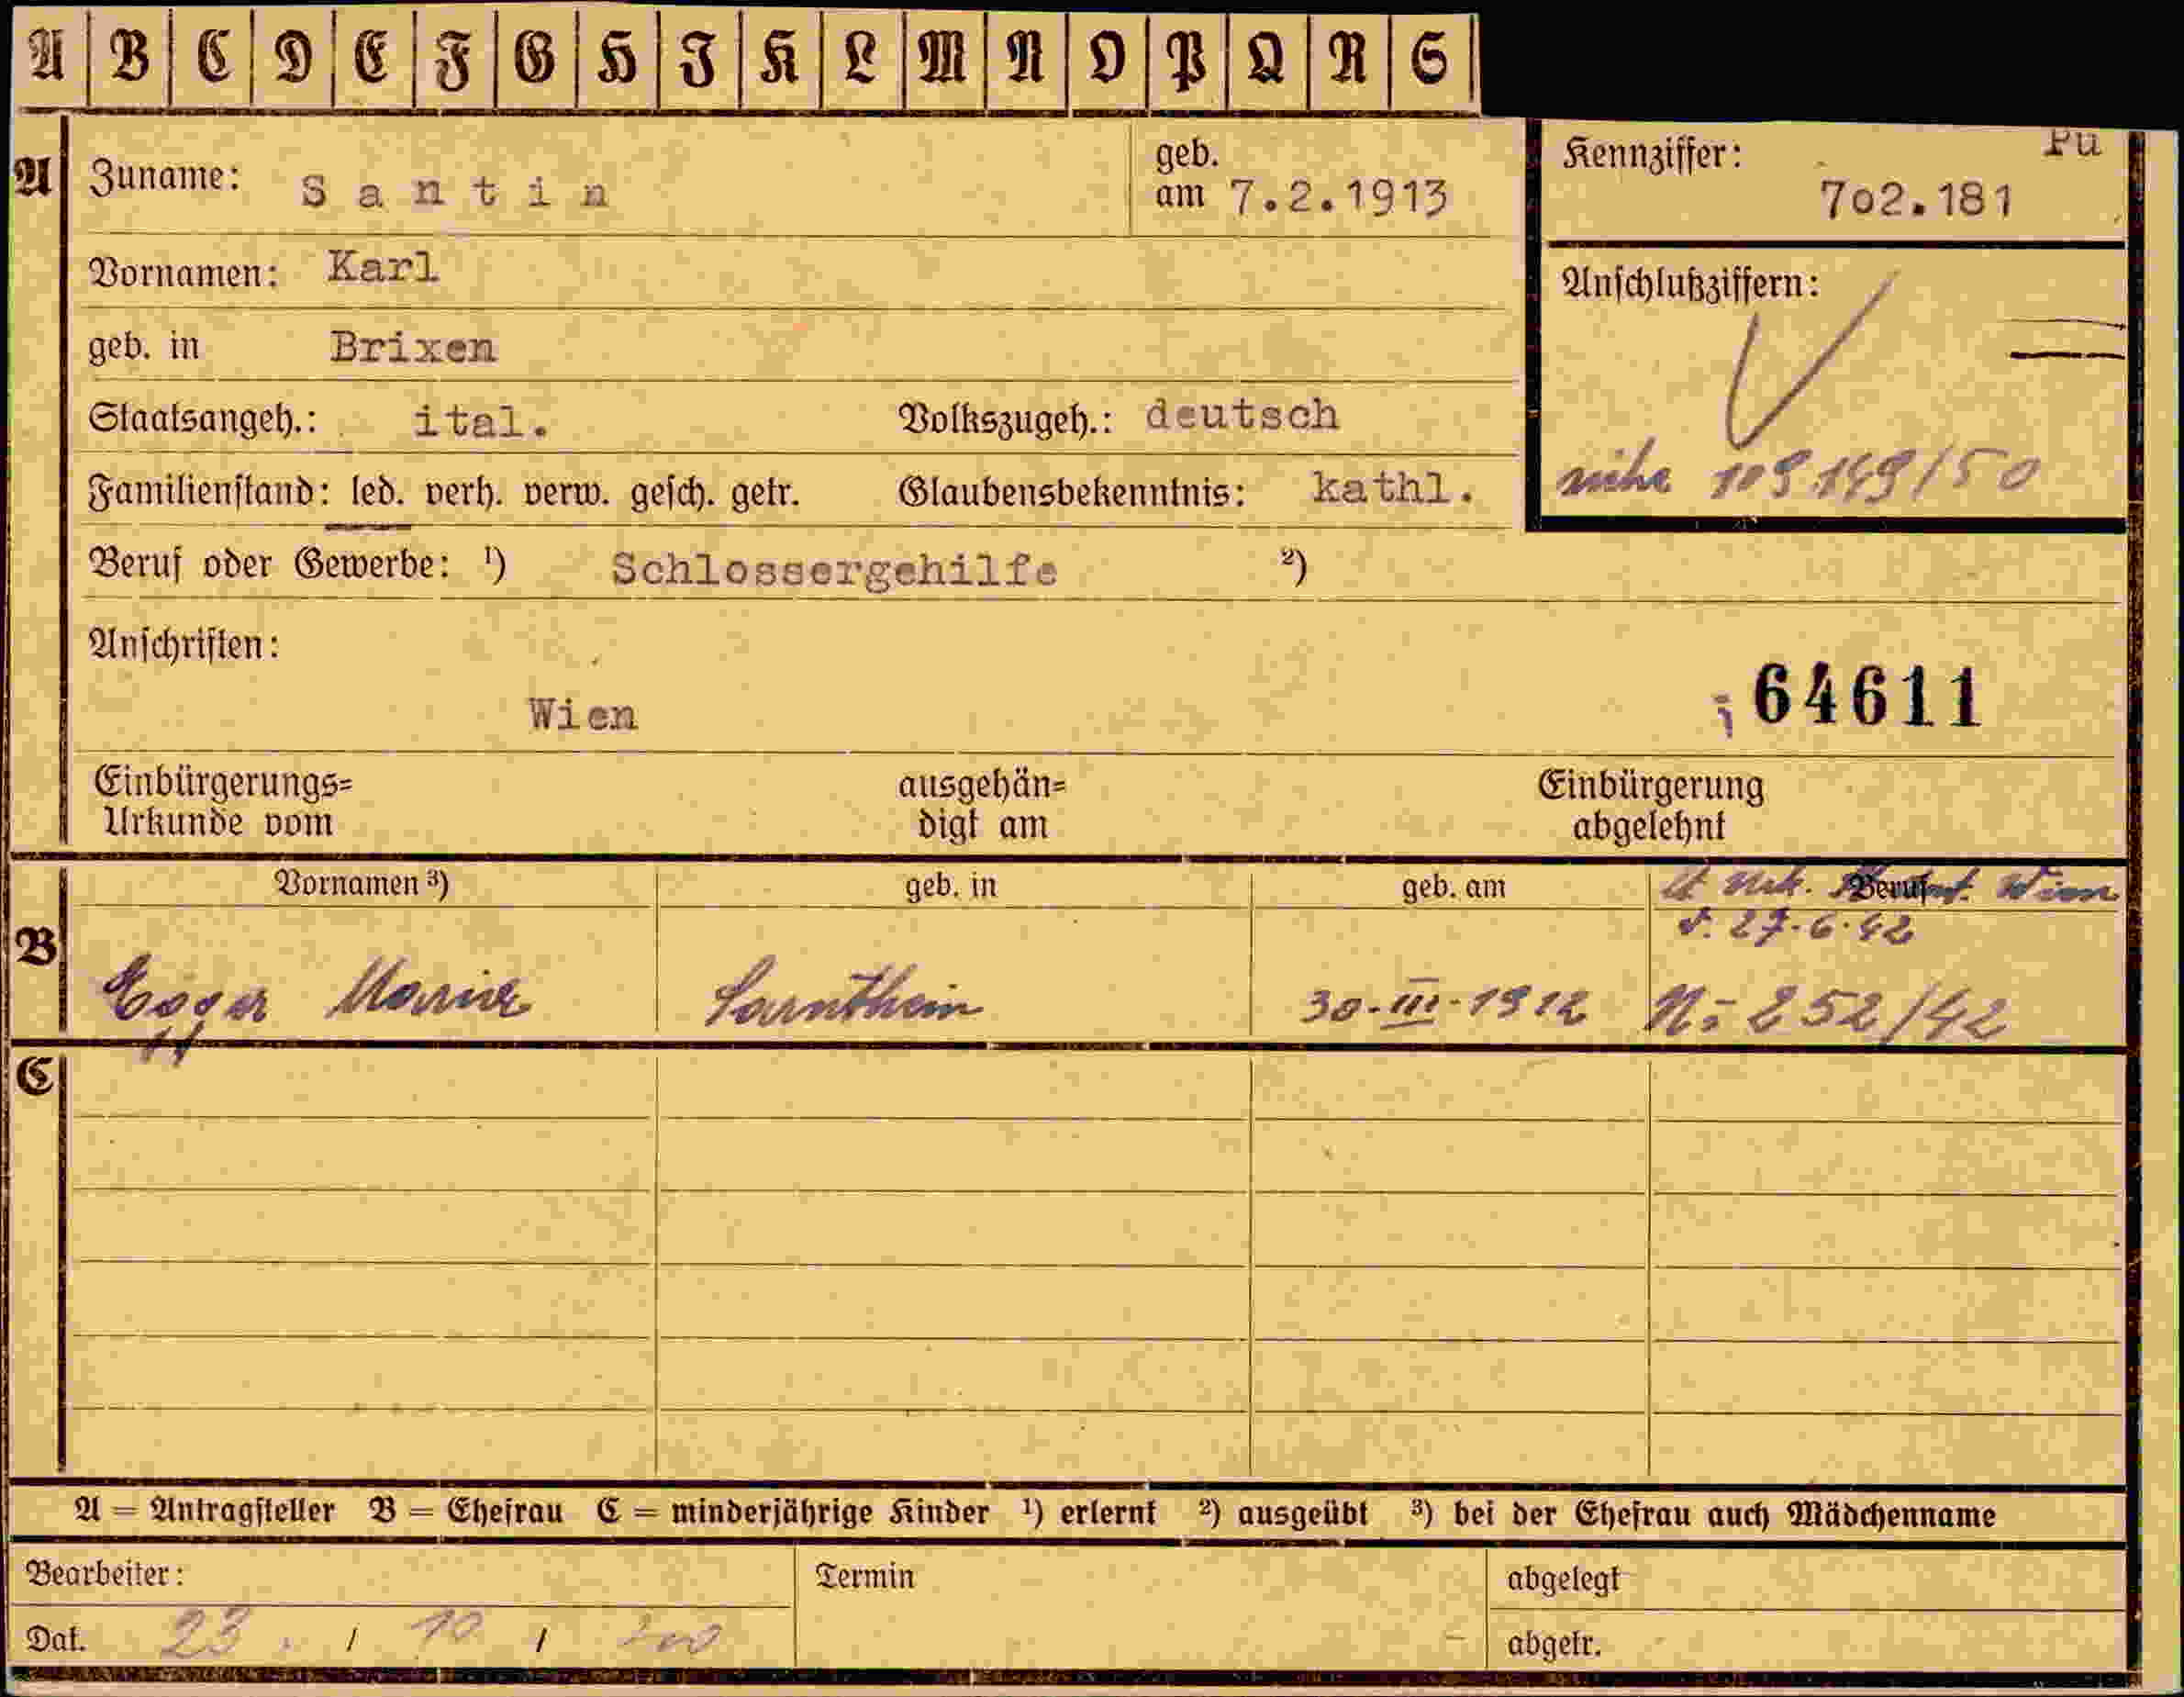 A B C D E F G H I K L M N O P Q R S
A Zuname: Santin geb. am 7.2.1913
Kennziffer: Pu
702.181
Vornamen: Karl
Anschlußziffern:
geb. in Brixen
Staatsangeh.: ital. Volkszugeh.: deutsch
siehe 109.149/50
Familienstand: led. verh. verw. gesch. getr. Glaubensbekenntnis: kathl.
Beruf oder Gewerbe: ¹) Schlossergehilfe ²)
Anschriften:
Wien
64611
Einbürgerungs=
Urkunde vom
ausgehän=
digt am
Einbürgerung
abgelehnt
Vornamen ³) geb. in geb. am Beruf
Urk. Wien
v. 27.6.42
B Egger Maria Sarnthein 30-III-1912 N= 252/42
C
A = Antragsteller B = Ehefrau C = minderjährige Kinder ¹) erlernt ²) ausgeübt ³) bei der Ehefrau auch Mädchenname
Bearbeiter: Termin abgelegt
Dat. 23. / 10 / abgetr.